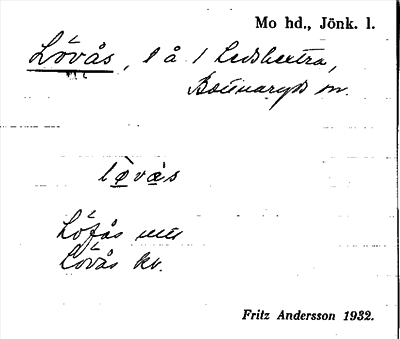 Mo hd., Jönk. l.
Lövås, l å 1 Ledshestra,
Bounaryds sn.
lø̀vås
Löfås
Lövås kv.
Fritz Andersson 1932.